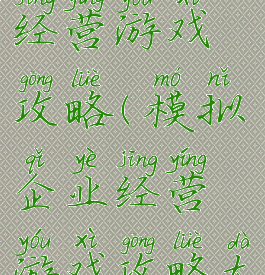 jīng yíng yóu xì
经营游戏
gōng lüè mó nǐ
攻略(模拟
qǐ yè jīng yíng
企业经营
yóu xì gōng lüè dà
游戏攻略大